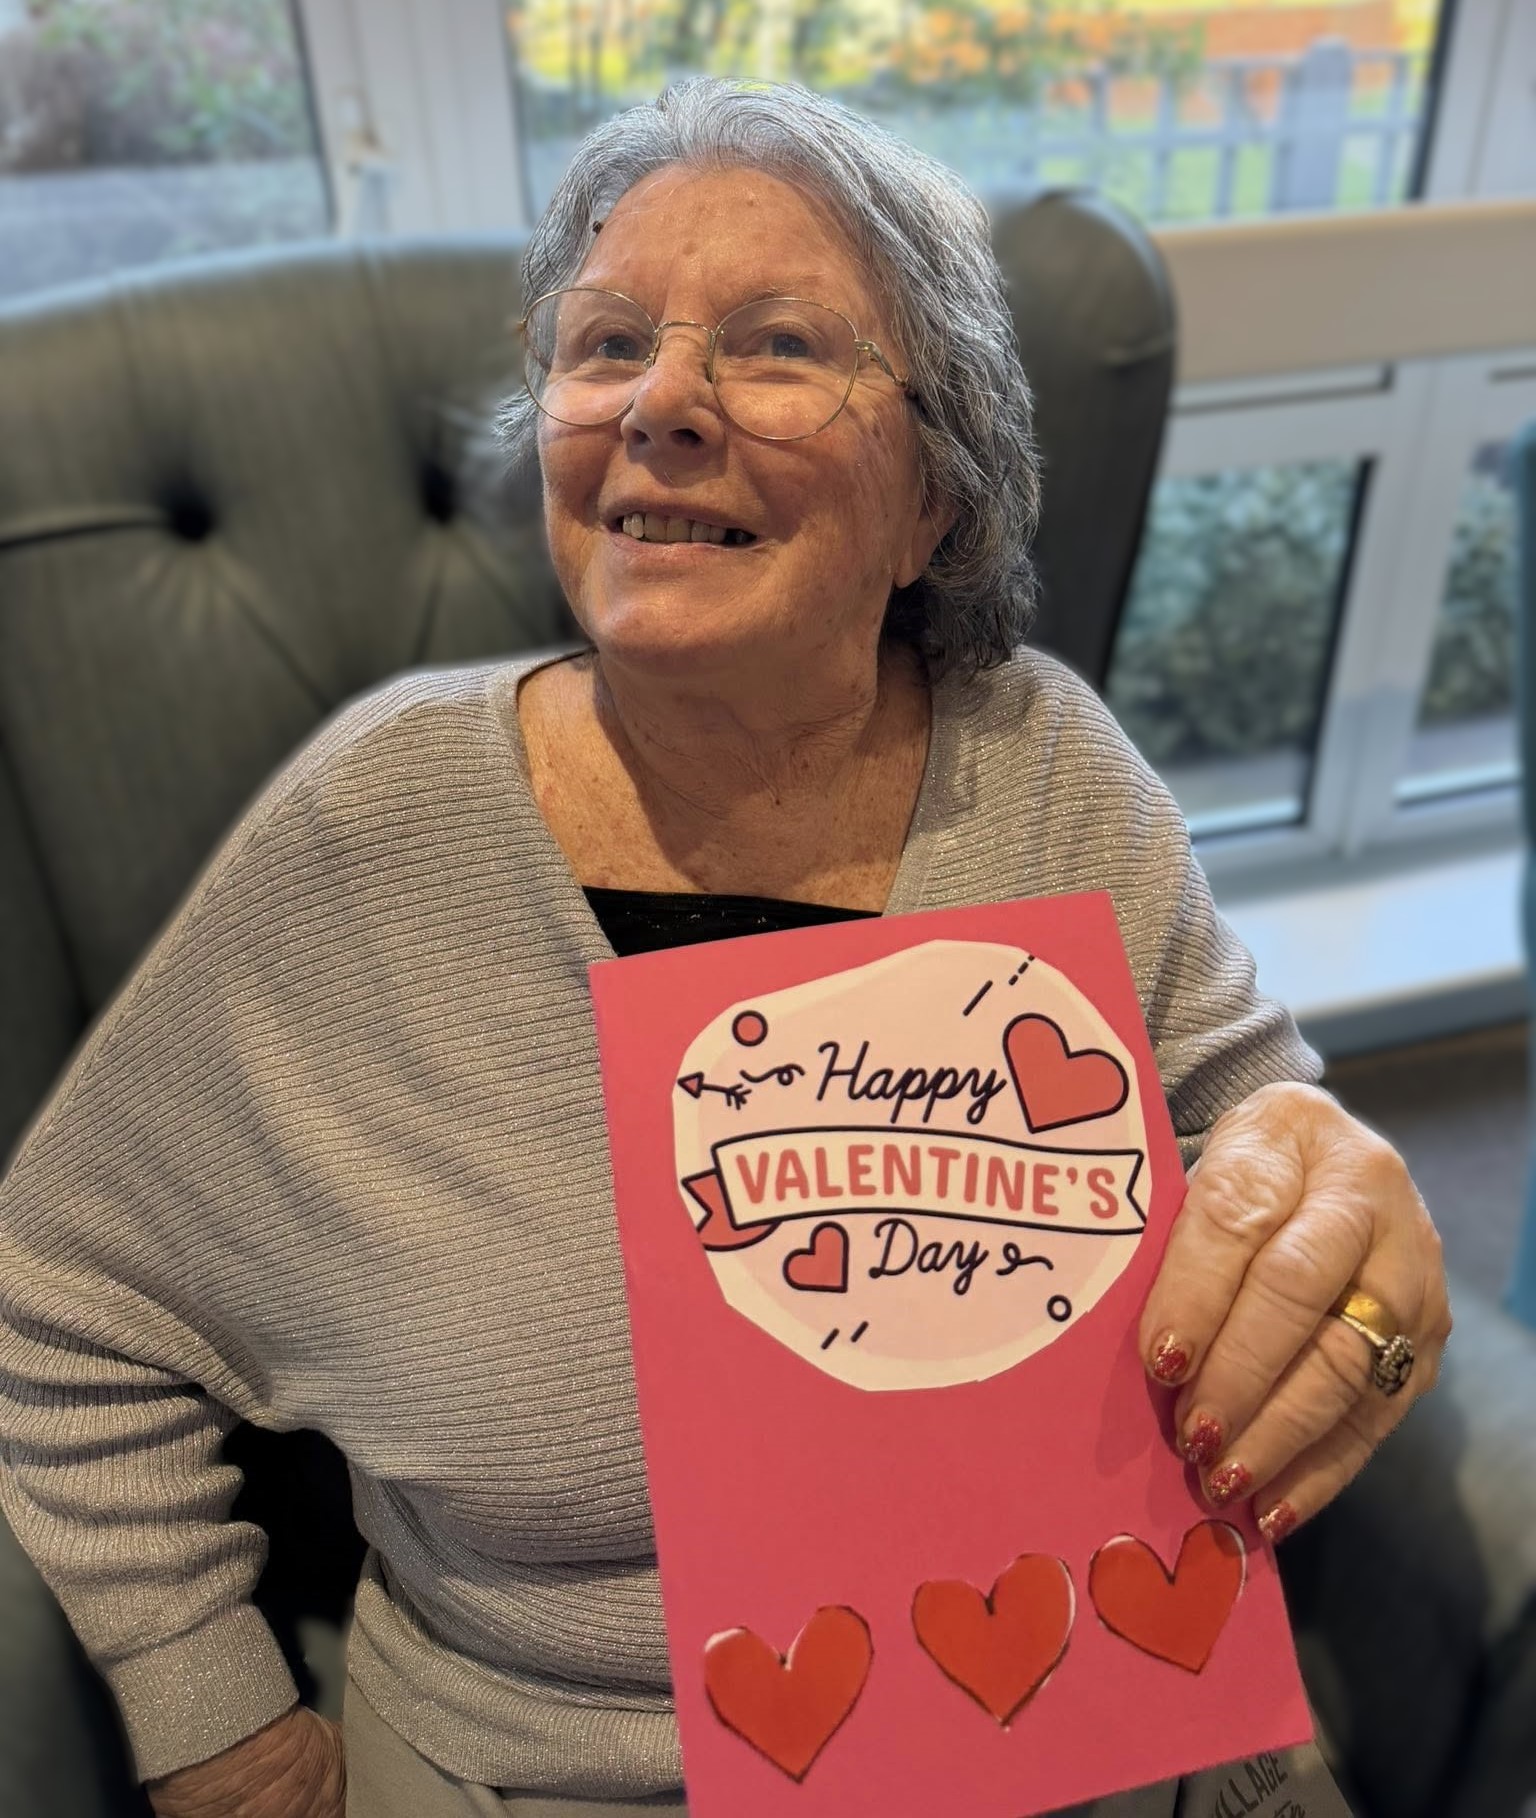 Happy
VALENTINE'S
Day